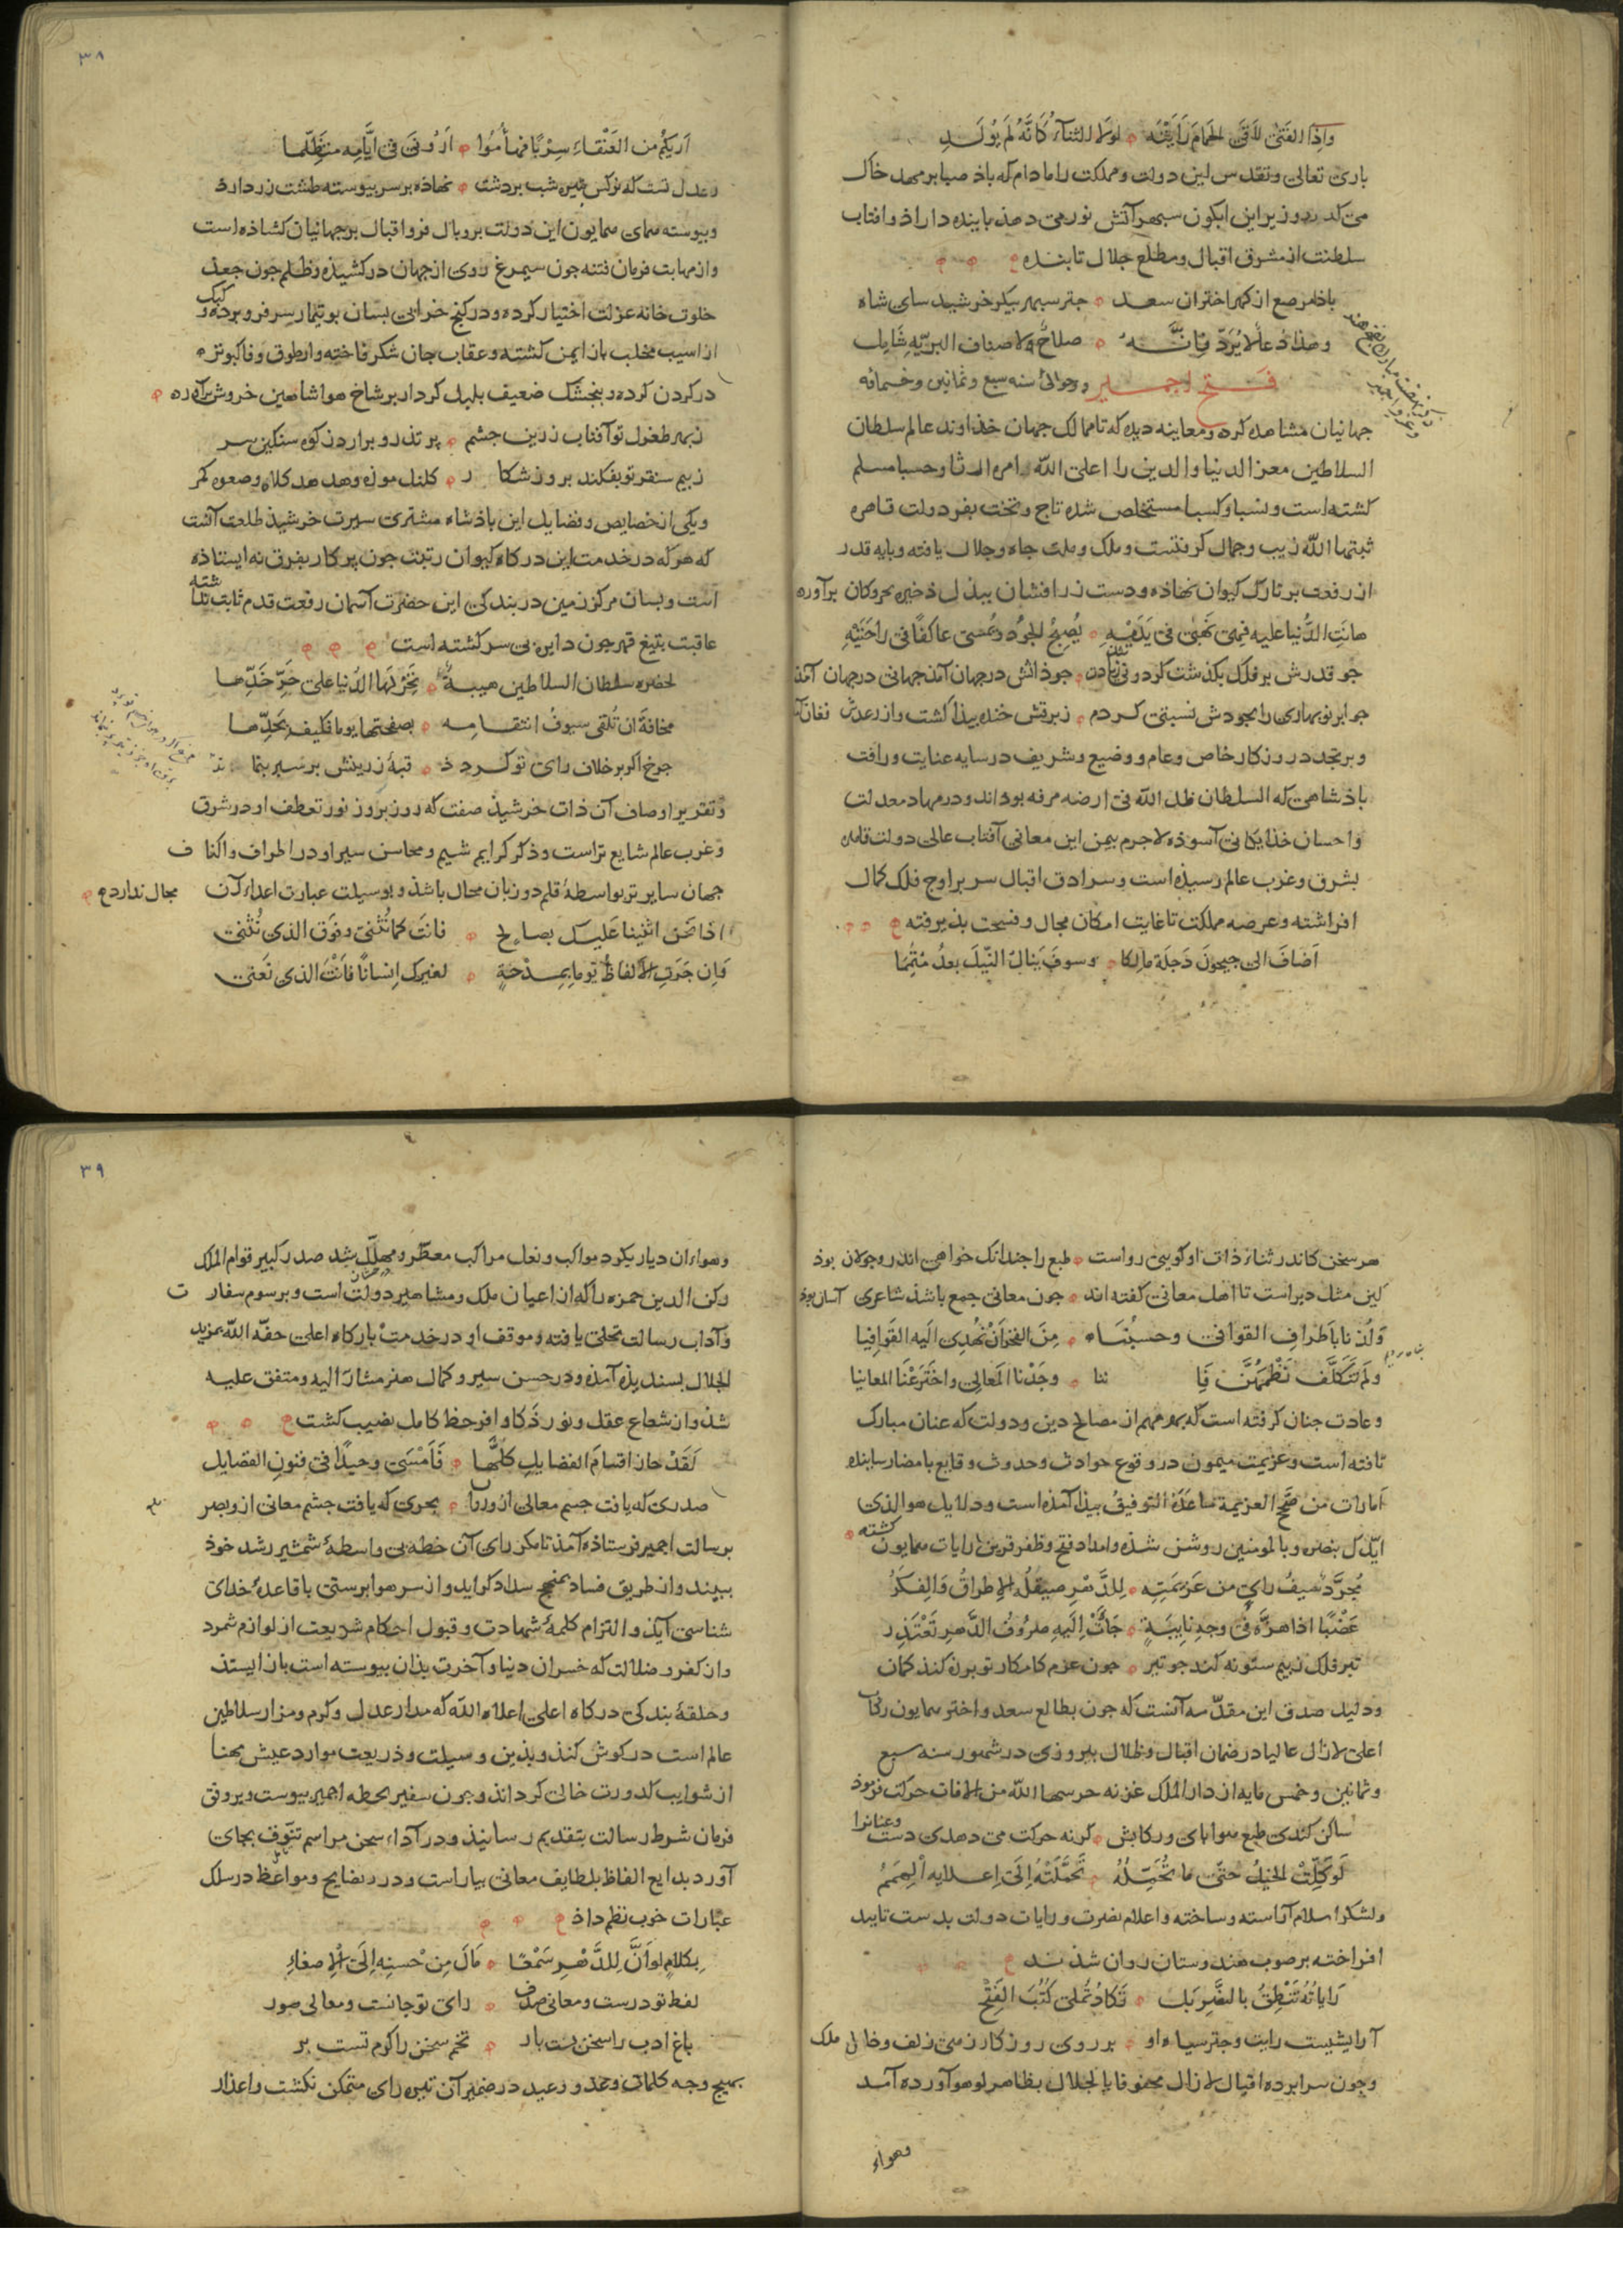 واذا الفتی لاقی الحمام رایته لولا الثناء کانه لم یولد
باری تعالی و تقدس این دولت و مملکت را ما دام که باذ صبا بر مهد خاک
می کذرد و زیر این ابکون سپهر آتش نور می دهذ باینده داراذ و افتاب
سلطنت از مشرق اقبال و مطلع جلال تابنده
باذا مرصع از کهر اختران سعد جتر سپهر بیکر خرشید سای شاه
و هذا دعا لا یرد فانه صلاح لاصناف البریه شامل
فتح اجمیر در حوالی سنه سبع و ثمانین و خمسمائه
جهانیان مشاهده کرده و معاینه دیده که تا ممالک جهان خذاوند عالم سلطان
السلاطین معز الدنیا والدین را اعلی الله امره ارثا و حسبا مسلم
کشته است و نسبا و کسبا مستخلص شده تاج و تخت بفر دولت قاهره
ثبتها الله زیب و جمال کرفتست و ملک و ملت جاه و جلال یافته و بایه قدر
از رفعت بر تارک کیوان نهاذه و دست زر افشان ببذل ذخیره بحر و کان برآورده
هانت الدنیا علیه فهی نهبی فی یدیه یصبح الجود و یمسی عاکفا فی راحتیه
جو قدرش بر فلک بکذشت کردونی زیادت جوذاتش در جهان آمذ جهانی در جهان آمذ
جو ابر نوبهاری را بجودش نسبتی کردم ز برقش خنده بیذا کشت و از رعدش فغان آمذ
و بر تجدد روزکار خاص و عام و وضیع و شریف در سایه عنایت و رافت
باذشاهی که السلطان ظل الله فی ارضه مرفه بوده اند و در مهاد معدلت
و احسان خذایکانی آسوذه لاجرم بیمن این معانی آفتاب عالی دولت قاهره
بشرق و غرب عالم رسیذه است و سرادق اقبال سر بر اوج فلک کمال
افراشته و عرصه مملکت تا غایت امکان مجال و فسحت بذیرفته
اضاف الی جیحون دجلة مالکا و سوف ینال النیل بعد متمما
۳۸
اریکم من العنقاء سربا فهاموا ارونی فی ایامه متظلما
عدل تست که نرکس بتیره شب بردشت نهاذه بر سر بیوسته طشت زر دارد
و بیوسته همای همایون این دولت بر و بال فر و اقبال بر جهانیان کشاذه است
و از مهابت فرمان فتنه جون سیمرغ روی از جهان در کشیذه و ظلم جون جغد
خلوت خانه عزلت اختیار کرده و در کنج خرابی بسان بوتیمار سر فرو برده و کبک
از اسیب مخلب باز ایمن کشته و عقاب جان شکر فاخته وار طوق وفا کبوتر
در کردن کرده و بنجشک ضعیف بلبل کردار بر شاخ هوا شاهین خروش برآورده
ز بهر طغرل تو آفتاب زرین جشم بر تذرو برارد ز کوه سنکین سر
ز بیم سنقر تو بفکند بروز شکار کلنک موزه و هدهد کلاه و صعوه کمر
و یکی از خصایص و فضایل این باذشاه مشتری سیرت خرشیذ طلعت آنست
که هر که در خدمت این درکاه کیوان رتبت جون برکار بفرق نه ایستاذه
است و بسان مرکز زمین در بندکی این حضرت آسمان رفعت قدم ثابت نداشته
عاقبت بتیغ قهر جون دایره بی سر کشته است
لحضرة سلطان السلاطین هیبة تخر لها الدنیا علی حر خدها
مخافة ان تلقی سیوف انتقامه بصفحتها یوما فکیف بحدها
جرخ اکر بر خلاف رای تو کرد ذ قبهٔ زرینش بر سپر بنماند
و تقریر اوصاف آن ذات خرشیذ صفت که روز بروز نور تعطف او در شرق
و غرب عالم شایع تراست و ذکر کرایم شیم و محاسن سیر او در اطراف و اکناف
جهان سایر تر بواسطهٔ قلم دو زبان محال باشذ و بوسیلت عبارت اعداد آن مجال ندارد ع
اذا نحن اثنینا علیک بصالح فانت کما نثنی و فوق الذی نثنی
فان جرت الالفاظ یوما بمدحة لغیرک انسانا فانت الذی نعنی
هر سخن کاندر ثناء ذات او کویی رواست طبع را جندانک خواهی اندر و جولان بوذ
کین مثل دیر است تا اهل معانی کفته اند جون معانی جمع باشذ شاعری آسان بوذ
و لذنا باطراف القوافی و حسبنا من الفخر ان نهدی الیه القوافیا
و لم نتکلف نظمهن فاننا وجدنا المعالی و اخترعنا المعانیا
و عادت جنان کرفته است که بهر مهم از مصالح دین و دولت که عنان مبارک
تافته است و عزیمت میمون در وقوع حوادث و حدوث وقایع بامضا رسانیده
امارات من صحح العزیمة ساعده التوفیق بیذا آمذه است و دلایل هو الذی
ایدک بنصره و بالمومنین روشن شذه و امداد فتح و ظفر قرین رایات همایون کشته
یجرد سیف رای من عزیمته للدهر صیقله الاطراق والفکر
عضبا اذا هزه فی وجه نایبة جاءت الیه صروف الدهر تعتذر
تیر فلک ز بیم ستونه کند جو تیر جون عزم کامکار تو برزن کند کمان
و دلیل صدق این مقدمه آنست که جون بطالع سعد و اختر همایون رکاب
اعلی لازال عالیا در ضمان اقبال و ظلال بیروزی در شهور سنه سبع
و ثمانین و خمس مایه از دار الملک غزنه حرسها الله من الافات حرکت فرموذ
ساکن کندی طبع هوا بای و رکابش کرنه حرکت می دهدی دست و عنانرا
لو کلت الخیل حتی ما تحمله تحملته الی اعدایه الهمم
و لشکر اسلام آراسته و ساخته و اعلام نصرت و رایات دولت بدست تایید
افراخته بر صوب هندوستان روان شذند
رایاته تنطق بالنصر بل تکاد تملی کتب الفتح
آرایشیست رایت و جتر سیاه او بر روی روزکار ز می زلف و خال ملک
و جون سرابرده اقبال لازال محفوفا بالجلال بظاهر لوهوا آورده آمد
وهواء
۳۹
و هواء ان دیار بکرد مواکب و نعل مراکب معطر و مهلل شد صدر کبیر قوام الملک
رکن الدین حمزه را که از اعیان ملک و مشاهیر دولت است و برسوم سفارت
و آداب رسالت تحلی یافته و موقف او در خدمت بارکاه اعلی حفه الله بمزید
الجلال بسندیذه آمذه و در حسن سیر و کمال هنر مشار الیه و متفق علیه
شذ و از شعاع عقل و نور ذکا و افر حظ کامل نصیب کشت
لقد حاز اقسام الفضایل کلها فامسی وحیدا فی فنون الفضایل
صدری که یافت جسم معالی ازو روان بحری که یافت جشم معانی ازو بصر
برسالت اجمیر فرستاذه آمذ تا مکر رای آن خطه بی واسطهٔ شمشیر رشد خوذ
ببیند و از طریق فساد بمنهج سداد کراید و از سر هوا برستی با قاعدهٔ خدای
شناسی آیذ و التزام کلمهٔ شهادت و قبول احکام شریعت از لوازم شمرد
و از کفر و ضلالت که خسران دنیا و آخرت بذان بیوسته است باز ایستذ
و حلقهٔ بندکی درکاه اعلی اعلاه الله که مدار عدل و کرم و مزار سلاطین
عالم است در کوش کنذ و بذین وسیلت و ذریعت موارد عیش مهنا
از شوایب کدورت خالی کرداند و جون سفیر بخطه اجمیر بیوست و بر وفق
فرمان شرط رسالت بتقدیم رسانیذ و در آداء سخن مراسم تنوق بجای
آورد بدایع الفاظ بلطایف معانی بیاراست و درر نصایح و مواعظ در سلک
عبارات خوب نظم داذ
بکلام لو ان للدهر سمعا مال من حسنه الی الاصغاء
لفظ تو درست و معانی صدف رای تو جانست و معالی صور
باغ ادب را سخن تست بار تخم سخن را کرم تست بر
بهیج وجه کلمات وعد و وعید در ضمیر آن تیره رای متمکن نکشت و اعذار